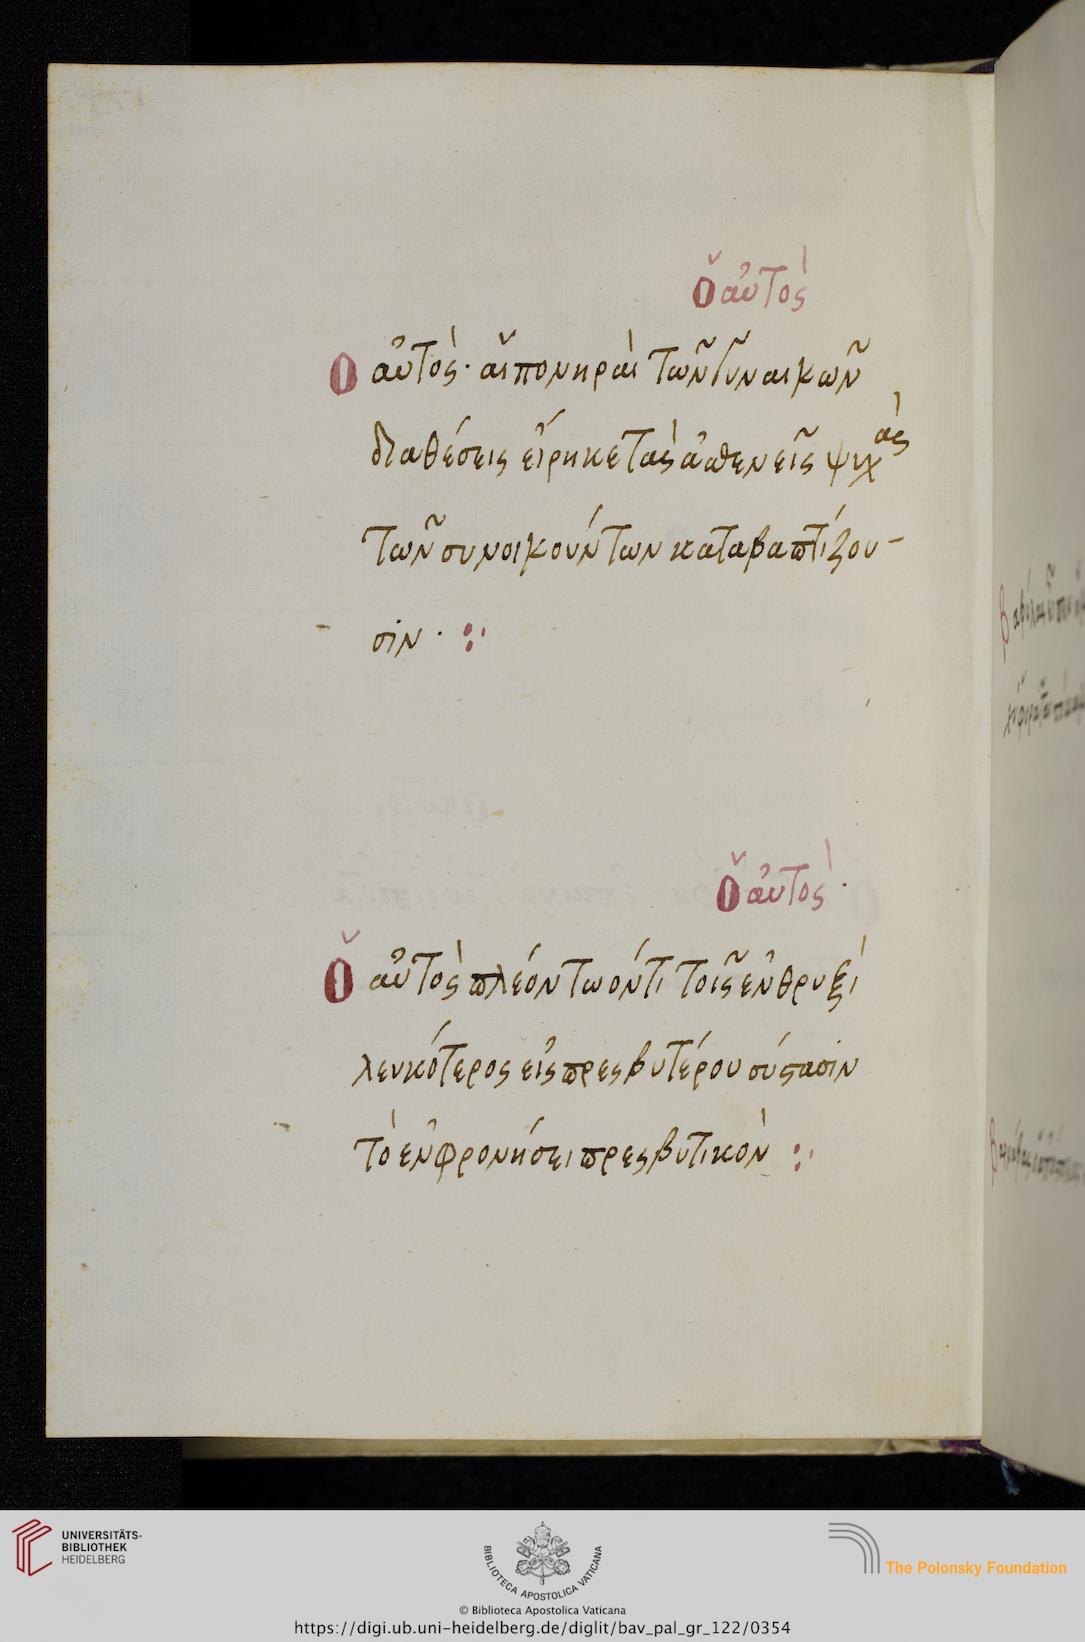 Ὁ αὐτὸς
Ὁ αὐτὸς· αἱ πονηραὶ τῶν γυναικῶν
διαθέσεις εἴρηκε τὰς ἀσθενεῖς ψυχὰς
τῶν συνοικούντων καταβαπτίζου-
σιν·
Ὁ αὐτὸς·
Ὁ αὐτὸς πλέον τω όντι τοῖς ἐν θρυξὶ
λευκότερος εἰς πρεςβυτέρου σύςασιν
τὸ ἐν φρονήσει πρεςβυτικὸν
UNIVERSITÄTS-
BIBLIOTHEK
HEIDELBERG
BIBLIOTECA APOSTOLICA VATICANA
© Biblioteca Apostolica Vaticana
The Polonsky Foundation
https://digi.ub.uni-heidelberg.de/diglit/bav_pal_gr_122/0354